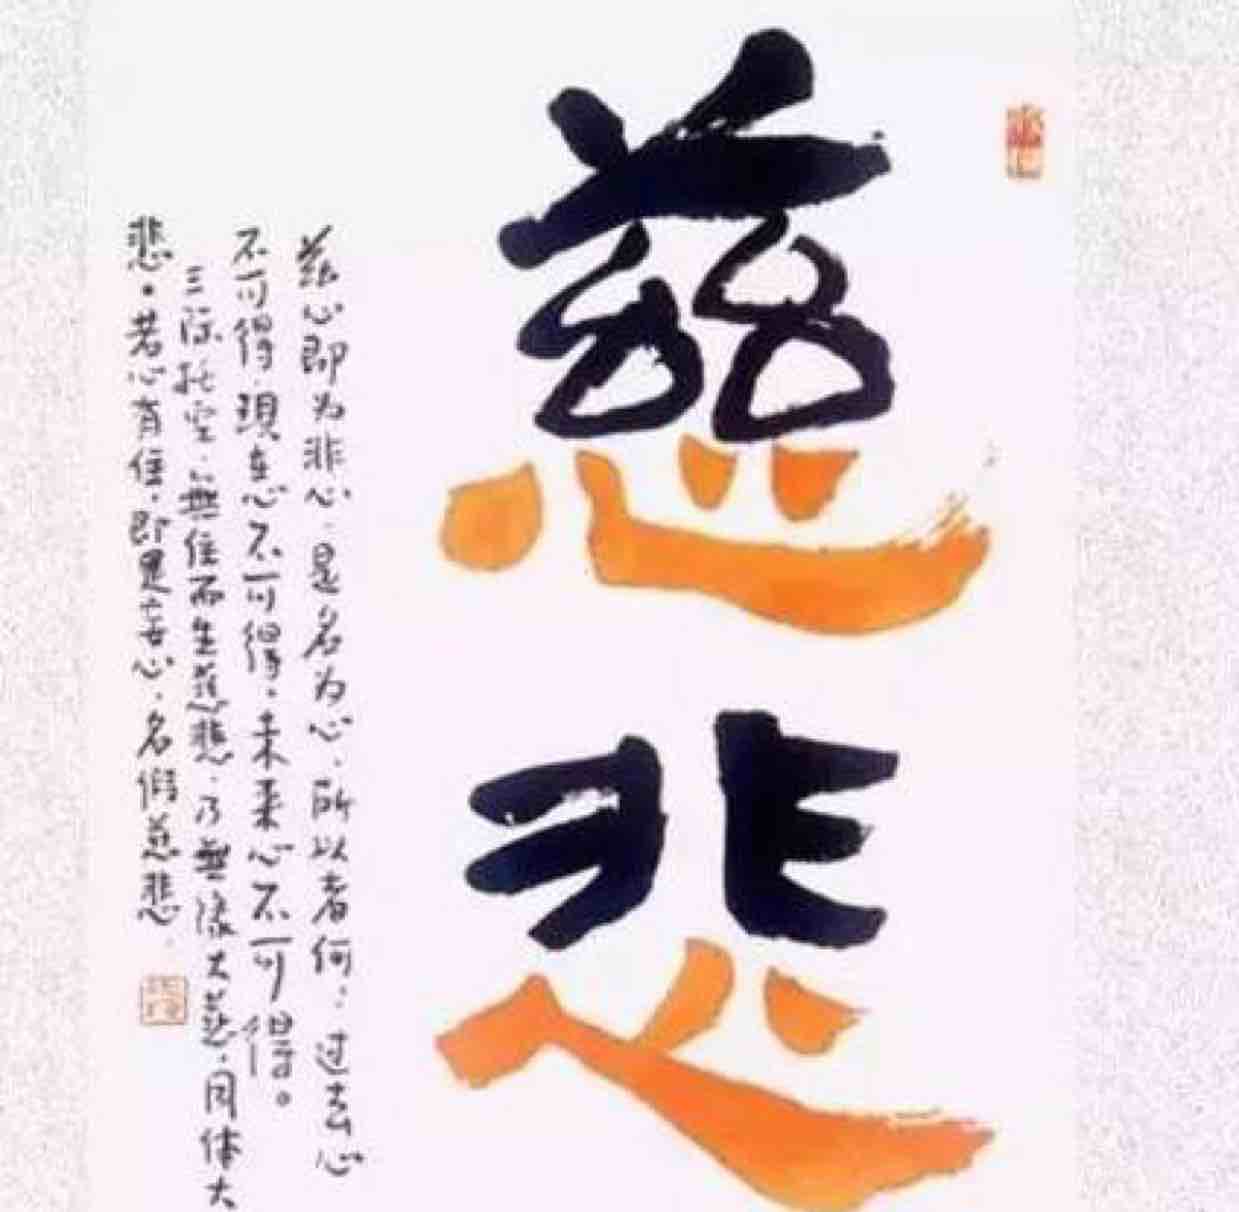 慈
悲
慈心即为非心，是名为心，所以者何：过去心
不可得，现在心不可得，未来心不可得。
三际托空，無住而生慈悲，乃無缘大慈，同体大
悲。若心有住，即是妄心，名假慈悲。